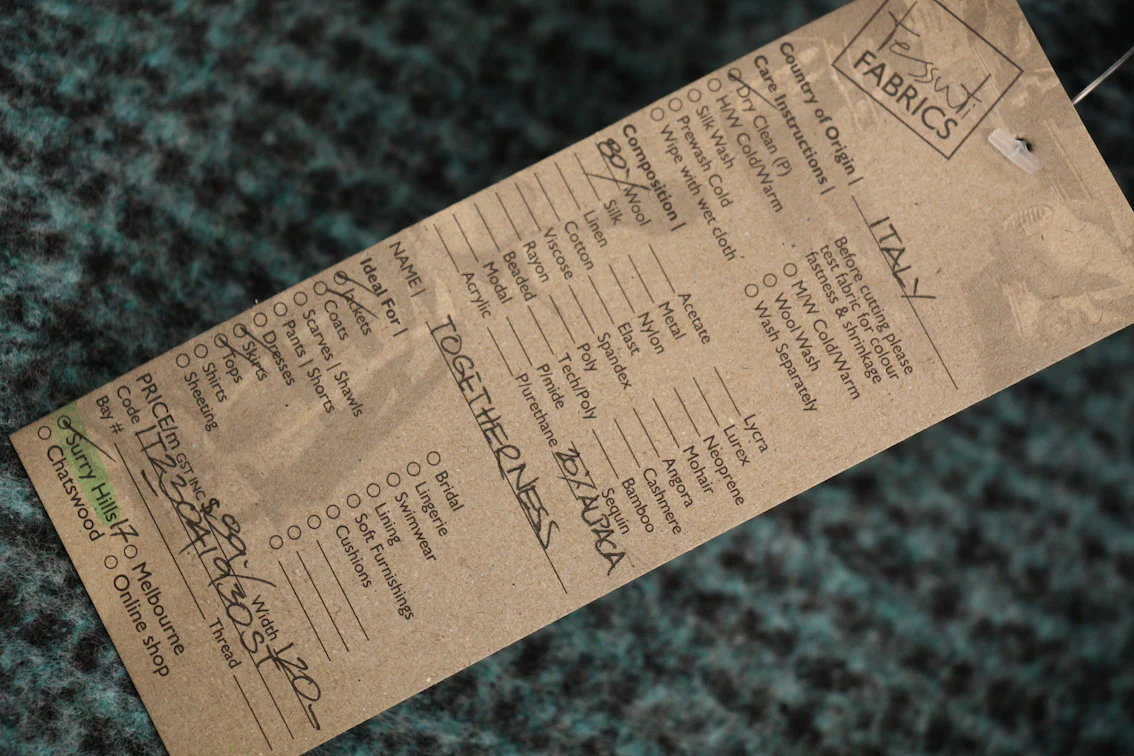 Tessuti
FABRICS
Country of Origin | ITALY
Care Instructions |
Before cutting please
test fabric for colour
fastness & shrinkage
Dry Clean (P)
H/W Cold/Warm
M/W Cold/Warm
Silk Wash
Wool Wash
Prewash Cold
Wash Separately
Wipe with wet cloth
Composition |
80% Wool
Acetate
Lycra
Silk
Metal
Lurex
Linen
Nylon
Neoprene
Cotton
Elast
Mohair
Viscose
Spandex
Angora
Rayon
Poly
Cashmere
Beaded
Tech/Poly
Bamboo
Modal
P/mide
Sequin
Acrylic
P/urethane
20% ALPACA
NAME | TOGETHERNESS
Ideal For |
Jackets
Bridal
Coats
Lingerie
Scarves | Shawls
Swimwear
Pants | Shorts
Lining
Dresses
Soft Furnishings
Skirts
Cushions
Tops
Shirts
Sheeting
PRICE/m GST INC $99 Width 120
Code
Bay #
Thread
Surry Hills 17
Melbourne
Chatswood
Online shop